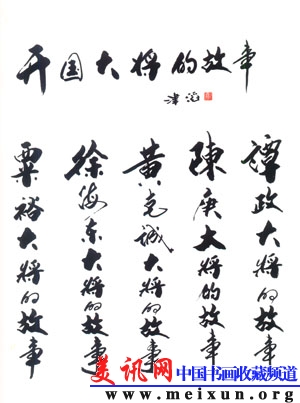 开国大将的故事
津滔
谭政大将的故事
陳庚大将的故事
黄克诚大将的故事
徐海东大将的故事
粟裕大将的故事
美讯网 中国书画收藏频道
www.meixun.org